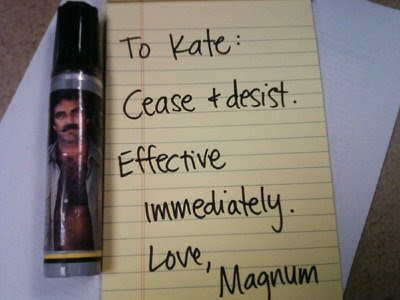 To Kate:
Cease & desist.
Effective
immediately.
Love,
Magnum